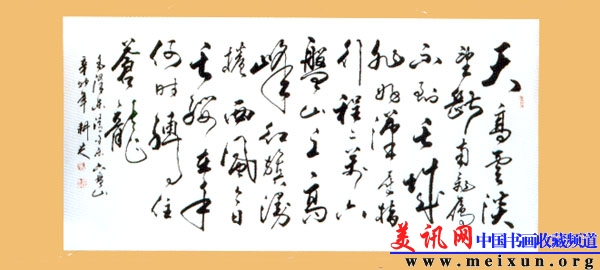 天高雲淡
望斷南飛雁
不到长城
非好漢屈指
行程二万六
盤山上高
峰紅旗漫
捲西風今日
长纓在手
何时縛住
蒼龍
毛澤东清平乐六盘山
辛卯年 耕夫
美讯网 中国书画收藏频道
www.meixun.org